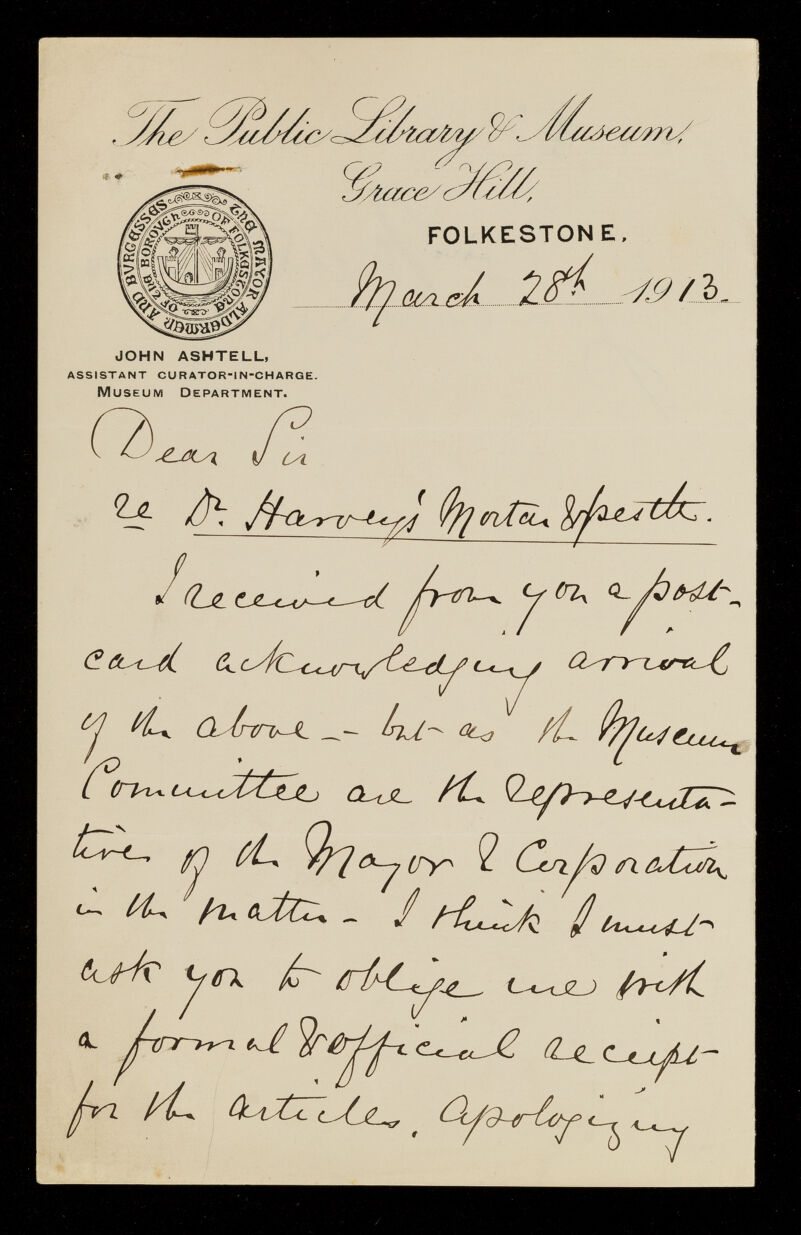 The Public Library & Museum,
Grace Hill,
FOLKESTONE.
THE MAYOR ALDERMEN AND BVRGESSES
OF THE BOROVGH OF FOLKESTONE
March 28th 1913.
JOHN ASHTELL,
ASSISTANT CURATOR-IN-CHARGE.
MUSEUM DEPARTMENT.
Dear Sir
re Dr. Harvey's Mortar & pestle.
I received from you a post-
card acknowledging arrival
of the above -- but as the Museum
Committee are the representa-
tives of the Mayor & Corporation
in the matter - I think I must
ask you to oblige me with
a formal & official receipt
for the articles. Apologizing